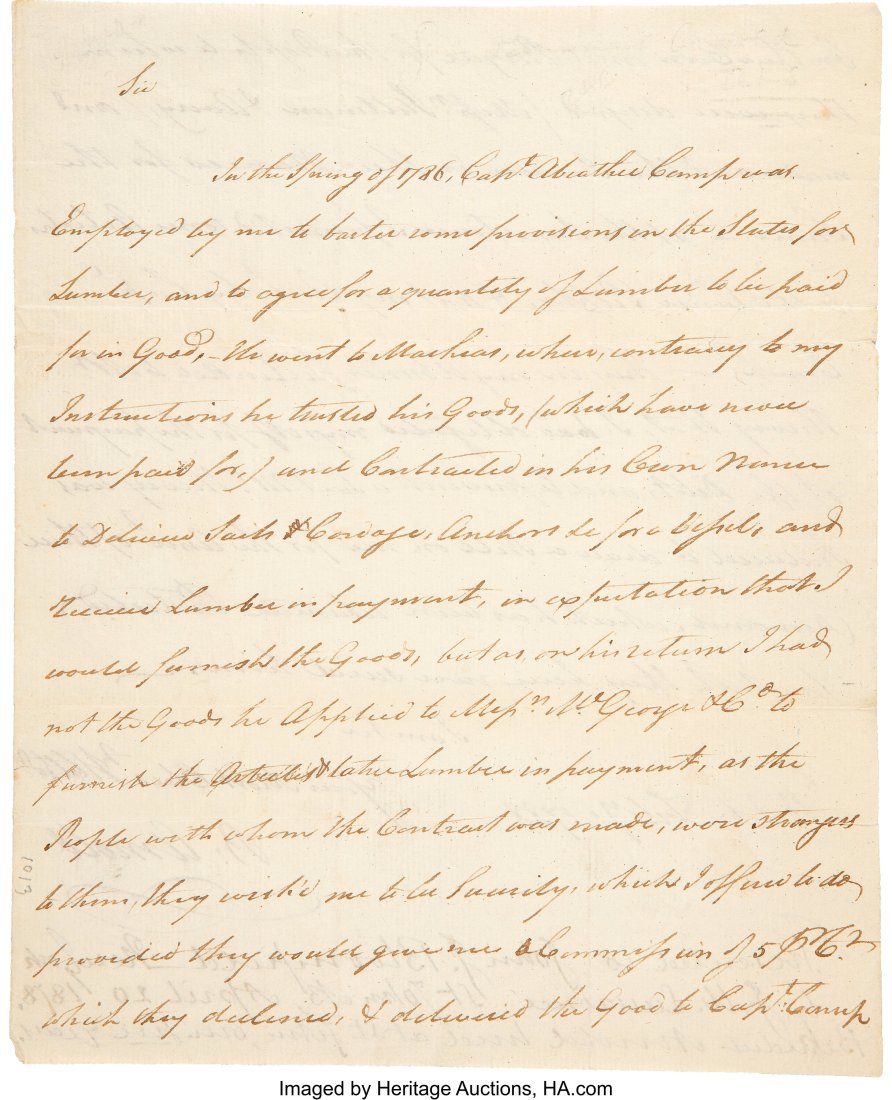 Sir
In the Spring of 1786, Capt. Abiather Camp was
Employed by me to barter some provisions in the States for
Lumber, and to agree for a quantity of Lumber to be paid
for in Goods, - He went to Machias, where, contrary to my
Instructions he trusted his Goods, (which have never
been paid for,) and Contracted in his Own Name
to Deliver Sails & Cordage, Anchors &c for a Vessel, and
receive Lumber in payment, in expectation that I
would furnish the Goods, but as, on his return I had
not the Goods he Applied to Messrs. McGeorge & Co. to
furnish the Articles & take Lumber in payment, as the
People with whom the Contract was made, were strangers
to them, they wish'd me to be Security, which I offered to do
provided they would give me a Commission of 5 Pr Ct.
which they declined, & delivered the Good to Capt. Camp
1013
Imaged by Heritage Auctions, HA.com